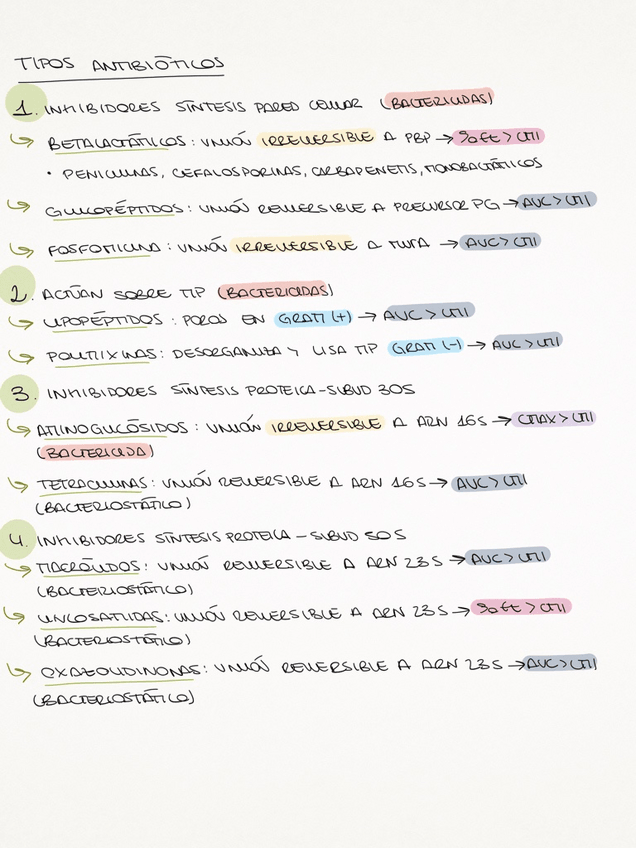 TIPOS ANTIBIÓTICOS
1. INHIBIDORES SÍNTESIS PARED CELULAR (BACTERICIDAS)
↪ BETALACTÁMICOS: UNIÓN IRREVERSIBLE A PBP → %fT > CMI
• PENICILINAS, CEFALOSPORINAS, CARBAPENEMS, MONOBACTÁMICOS
↪ GLICOPÉPTIDOS: UNIÓN REVERSIBLE A PRECURSOR PG → AUC > CMI
↪ FOSFOMICINA: UNIÓN IRREVERSIBLE A MURA → AUC > CMI
2. ACTÚAN SOBRE MP (BACTERICIDAS)
↪ LIPOPÉPTIDOS: POROS EN GRAM (+) → AUC > CMI
↪ POLIMIXINAS: DESORGANIZA Y LISA MP GRAM (-) → AUC > CMI
3. INHIBIDORES SÍNTESIS PROTEICA - SUBUD 30S
↪ AMINOGLUCÓSIDOS: UNIÓN IRREVERSIBLE A ARN 16S → CMAX > CMI
(BACTERICIDA)
↪ TETRACICLINAS: UNIÓN REVERSIBLE A ARN 16S → AUC > CMI
(BACTERIOSTÁTICO)
4. INHIBIDORES SÍNTESIS PROTEICA - SUBUD 50S
↪ MACRÓLIDOS: UNIÓN REVERSIBLE A ARN 23S → AUC > CMI
(BACTERIOSTÁTICO)
↪ LINCOSAMIDAS: UNIÓN REVERSIBLE A ARN 23S → %fT > CMI
(BACTERIOSTÁTICO)
↪ OXAZOLIDINONAS: UNIÓN REVERSIBLE A ARN 23S → AUC > CMI
(BACTERIOSTÁTICO)